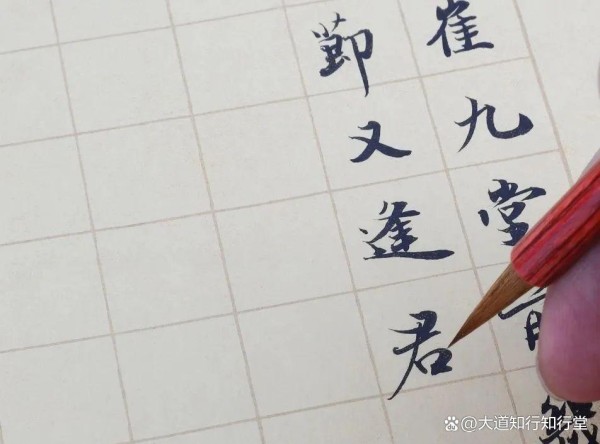 崔九堂前幾
節又逢君
@大道知行知行堂